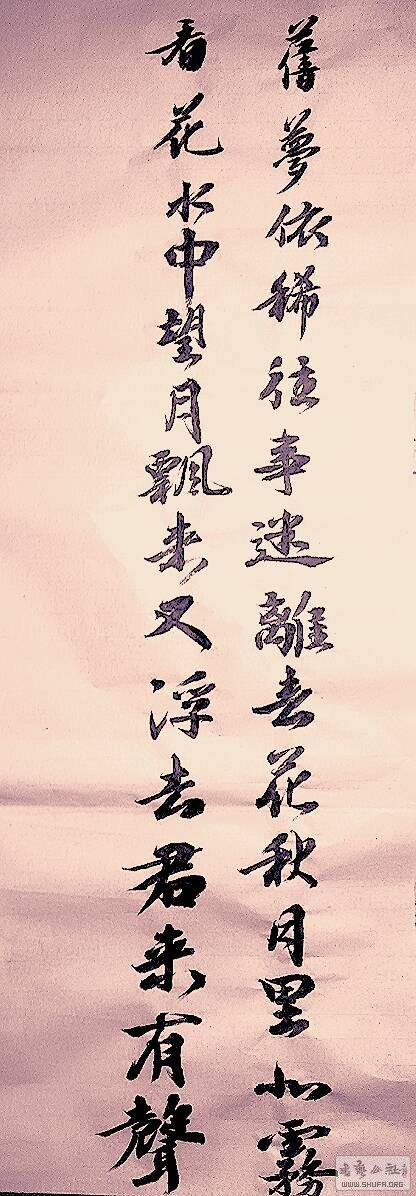 舊夢依稀往事迷離春花秋月里如霧
看花水中望月飄来又浮去君来有聲
WWW.SHUFA.ORG